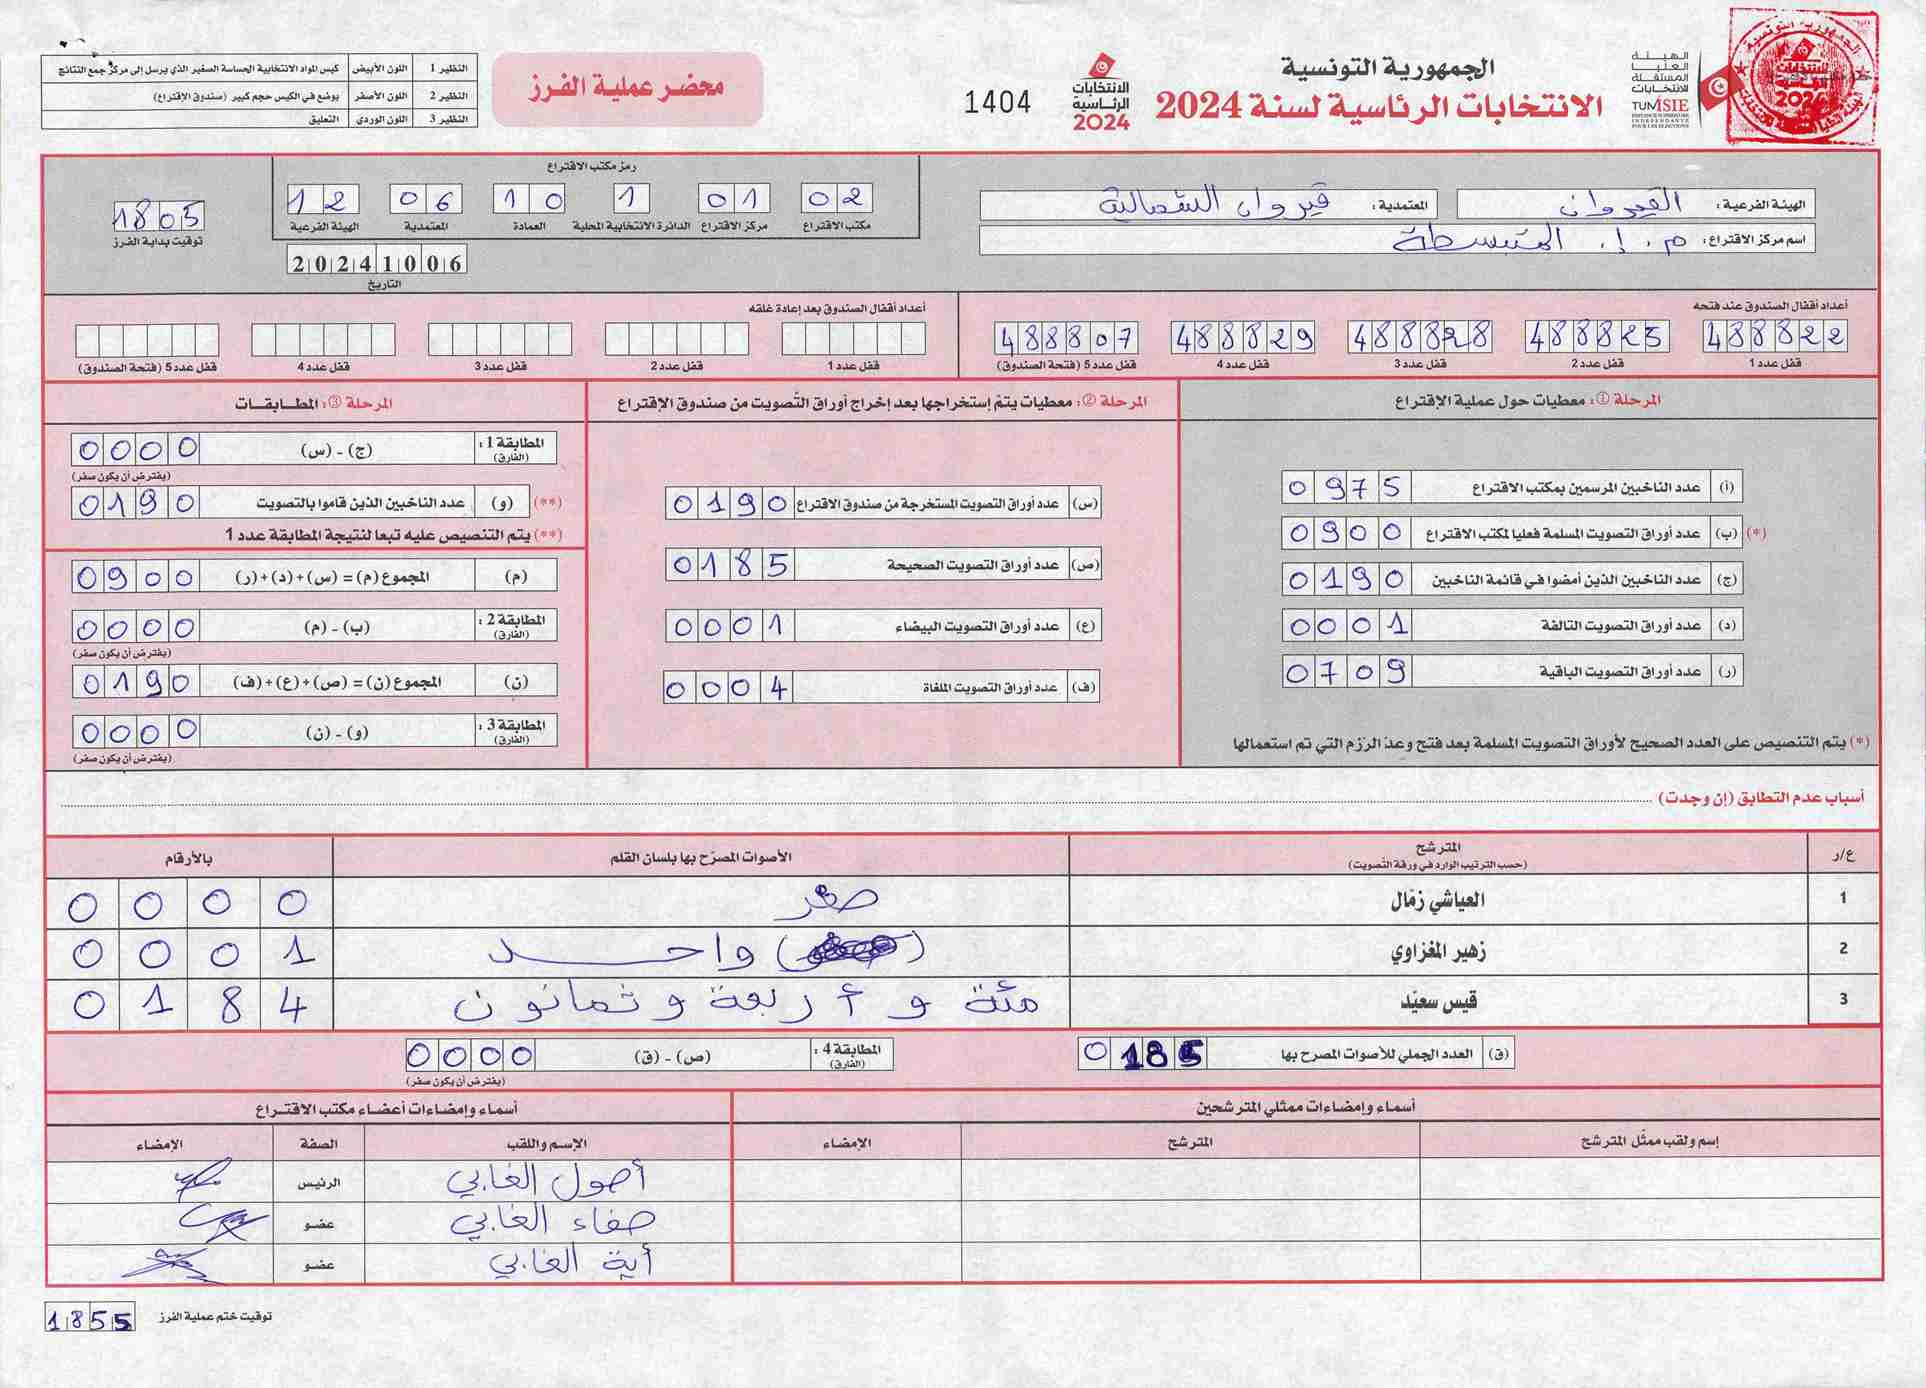 الجمهورية التونسية
الانتخابات الرئاسية لسنة 2024
الهيئة
العليا
المستقلة
للانتخابات
TUNISIE
INSTANCE SUPERIEURE
INDEPENDANTE
POUR LES ELECTIONS
الانتخابات
الرئاسية
2024
1404
محضر عملية الفرز
النظير 1 اللون الأبيض كيس المواد الانتخابية الحساسة الصغير الذي يرسل إلى مركز جمع النتائج
النظير 2 اللون الأصفر يوضع في الكيس حجم كبير (صندوق الإقتراع)
النظير 3 اللون الوردي التعليق
الهيئة الفرعية : القيروان المعتمدية : قيروان الشمالية
اسم مركز الاقتراع : م. إ. المتبسطة
رمز مكتب الاقتراع
02 01 1 10 06 12
مكتب الاقتراع مركز الاقتراع الدائرة الانتخابية المحلية العمادة المعتمدية الهيئة الفرعية
20241006
التاريخ
1805
توقيت بداية الفرز
أعداد أقفال الصندوق عند فتحه
488822 488825 488828 488829 488807
قفل عدد 1 قفل عدد 2 قفل عدد 3 قفل عدد 4 قفل عدد 5 (فتحة الصندوق)
أعداد أقفال الصندوق بعد إعادة غلقه
قفل عدد 1 قفل عدد 2 قفل عدد 3 قفل عدد 4 قفل عدد 5 (فتحة الصندوق)
المرحلة ①: معطيات حول عملية الإقتراع
(أ) عدد الناخبين المرسمين بمكتب الاقتراع 0975
(*) (ب) عدد أوراق التصويت المسلمة فعليا لمكتب الاقتراع 0900
(ج) عدد الناخبين الذين أمضوا في قائمة الناخبين 0190
(د) عدد أوراق التصويت التالفة 0001
(ر) عدد أوراق التصويت الباقية 0709
(*) يتم التنصيص على العدد الصحيح لأوراق التصويت المسلمة بعد فتح وعدّ الرّزم التي تم استعمالها
المرحلة ②: معطيات يتمّ إستخراجها بعد إخراج أوراق التّصويت من صندوق الإقتراع
(س) عدد أوراق التصويت المستخرجة من صندوق الاقتراع 0190
(ص) عدد أوراق التصويت الصحيحة 0185
(ع) عدد أوراق التصويت البيضاء 0001
(ف) عدد أوراق التصويت الملغاة 0004
المرحلة ③: المطـابقـات
المطابقة 1 : (الفارق) (ج) - (س) 0000
(يفترض أن يكون صفر)
(**) (و) عدد الناخبين الذين قاموا بالتصويت 0190
(**) يتم التنصيص عليه تبعا لنتيجة المطابقة عدد 1
(م) المجموع (م) = (س) + (د) + (ر) 0900
المطابقة 2 : (الفارق) (ب) - (م) 0000
(يفترض أن يكون صفر)
(ن) المجموع (ن) = (ص) + (ع) + (ف) 0190
المطابقة 3 : (الفارق) (و) - (ن) 0000
(يفترض أن يكون صفر)
أسباب عدم التطابق (إن وجدت)
ع/ر المترشح الأصوات المصرّح بها بلسان القلم بالأرقام
(حسب الترتيب الوارد في ورقة التّصويت)
1 العياشي زمّال صفر 0000
2 زهير المغزاوي ( ) واحد 0001
3 قيس سعيّد مئة و أربعة و ثمانون 0184
(ق) العدد الجملي للأصوات المصرح بها 0185
المطابقة 4 : (الفارق) (ص) - (ق) 0000
(يفترض أن يكون صفر)
أسماء وإمضاءات ممثلي المترشحين
إسم ولقب ممثّل المترشح المترشح الإمضاء
أسماء وإمضاءات أعضاء مكتب الاقتـراع
الإسم واللقب الصفة الإمضاء
أصول الغابي الرئيس
صفاء الغابي عضو
أية الغابي عضو
توقيت ختم عملية الفرز 1855